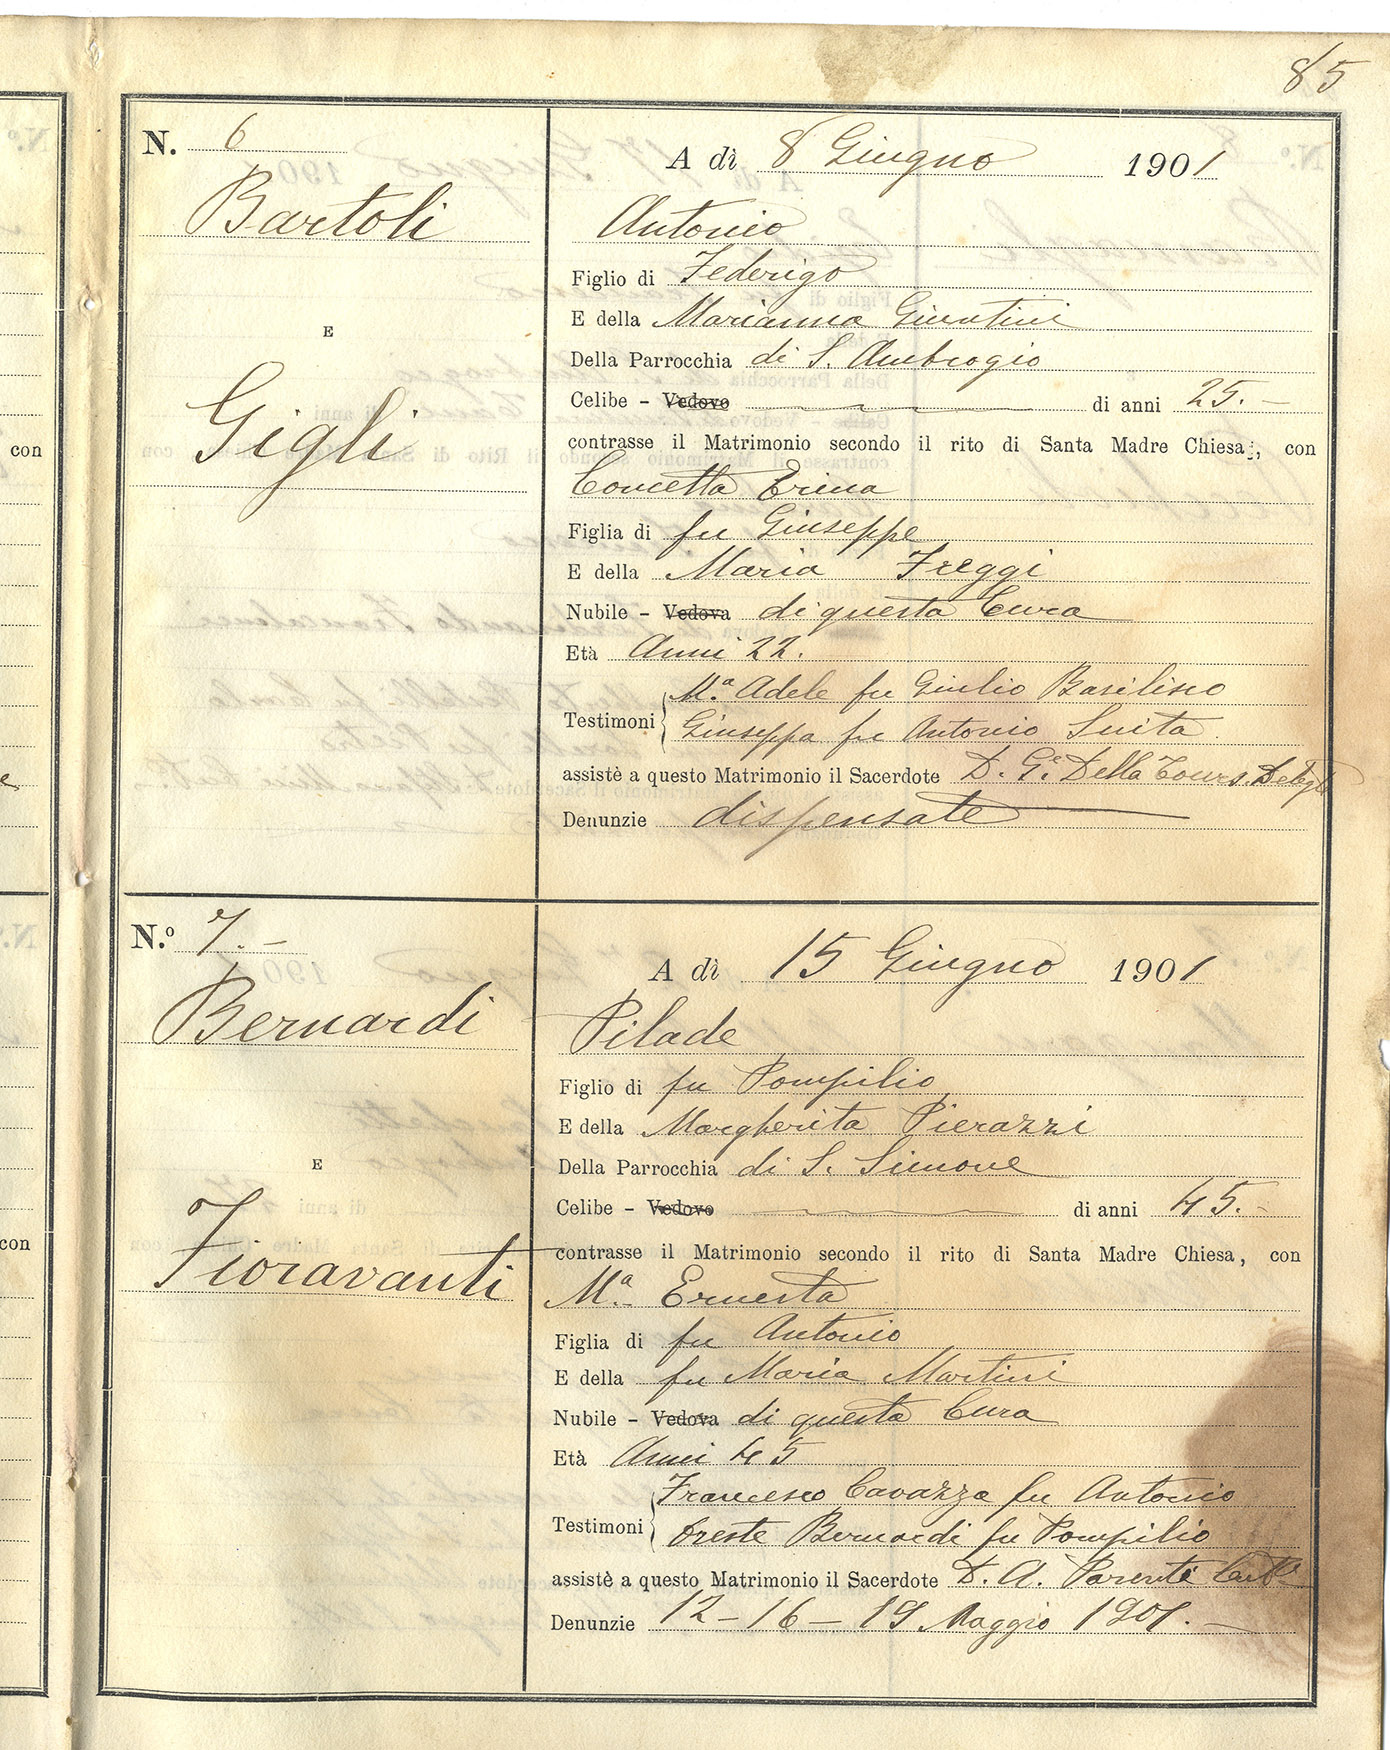 85
N. 6
Bartoli
E
Gigli
A dì 8 Giugno 1901
Antonio
Figlio di Federigo
E della Marianna Giuntini
Della Parrocchia di S. Ambrogio
Celibe - Vedovo di anni 25. -
contrasse il Matrimonio secondo il rito di Santa Madre Chiesa, con
Concetta Erina
Figlia di fu Giuseppe
E della Maria Freggi
Nubile - Vedova di questa Cura
Età Anni 22.
Testimoni Mª Adele fu Giulio Basilisco
Giuseppa fu Antonio Suita
assistè a questo Matrimonio il Sacerdote D. G. Della
Denunzie dispensate
N.º 7. -
Bernardi
E
Fioravanti
A dì 15 Giugno 1901
Pilade
Figlio di fu Pompilio
E della Margherita Pierazzi
Della Parrocchia di S. Simone
Celibe - Vedovo di anni 45. -
contrasse il Matrimonio secondo il rito di Santa Madre Chiesa, con
Mª Ernesta
Figlia di fu Antonio
E della fu Maria Martini
Nubile - Vedova di questa Cura
Età Anni 45
Testimoni Francesco Cavazza fu Antonio
Oreste Bernardi fu Pompilio
assistè a questo Matrimonio il Sacerdote D. A. Parenti
Denunzie 12 - 16 - 19 Maggio 1901. -
con
con